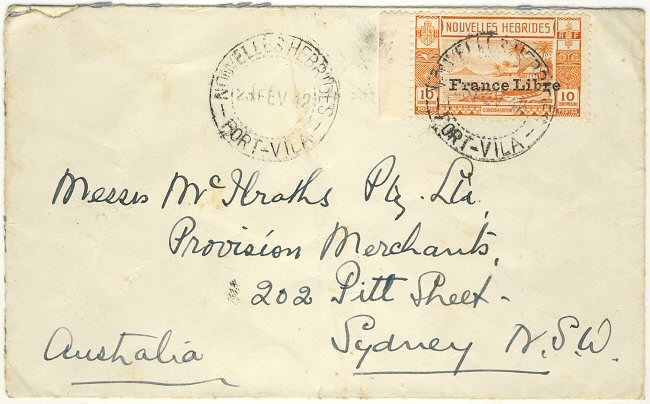 NOUVELLES HEBRIDES
28 FEV 42
PORT-VILA
NOUVELLES HEBRIDES
RF
France Libre
10 10
CENTIMES OR
CONDOMINIUM
POSTES
NOUVELLES HEBRIDES
PORT-VILA
Messrs McIlraths Pty. Ltd,
Provision Merchants,
202 Pitt Street -
Sydney N.S.W.
Australia